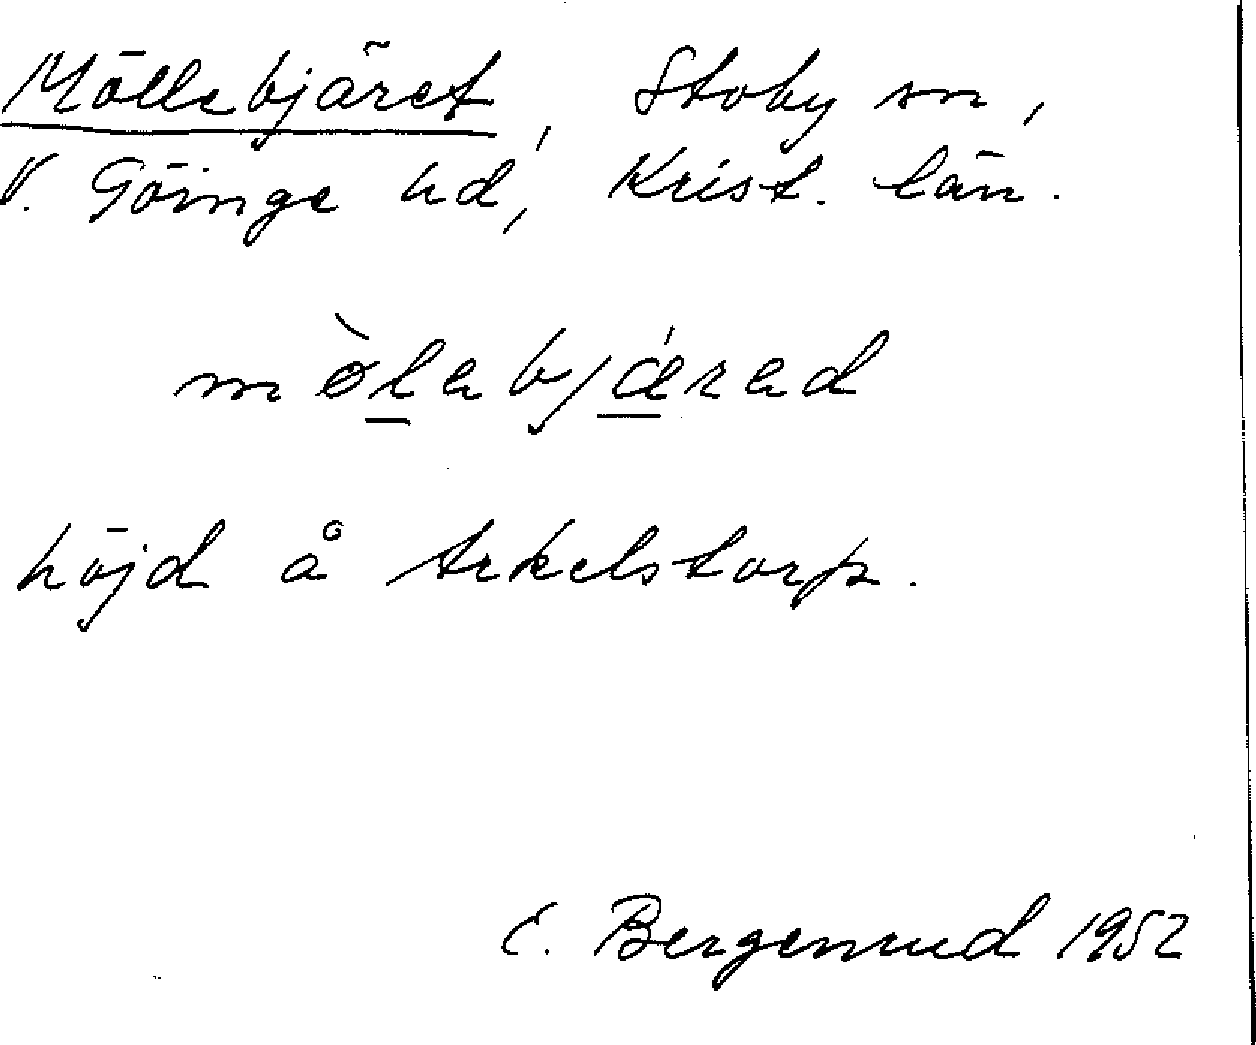 Möllebjäret, Stoby sn,
V. Göinge hd, Krist. län.
mø̀labjǽrad
höjd å Arkelstorp.
E. Bergenrud 1952